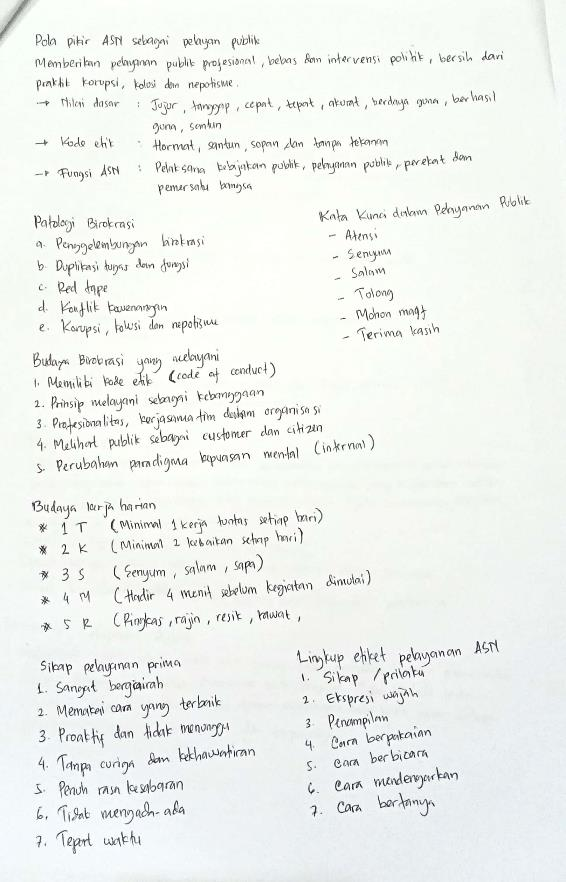 Pola pikir ASN sebagai pelayan publik
Memberikan pelayanan publik profesional, bebas dan intervensi politik, bersih dari
praktik korupsi, kolosi dan nepotisme.
→ Nilai dasar : Jujur, tanggap, cepat, tepat, akurat, berdaya guna, berhasil
guna, santun
→ Kode etik : Hormat, santun, sopan dan tanpa tekanan
→ Fungsi ASN : Pelaksana kebijakan publik, pelayanan publik, perekat dan
pemersatu bangsa
Patologi Birokrasi
a. Penggelembungan birokrasi
b. Duplikasi tugas dan fungsi
c. Red tape
d. Konflik kewenangan
e. Korupsi, kolusi dan nepotisme
Kata Kunci dalam Pelayanan Publik
- Atensi
- Senyum
- Salam
- Tolong
- Mohon maaf
- Terima kasih
Budaya Birokrasi yang melayani
1. Memiliki kode etik (code of conduct)
2. Prinsip melayani sebagai kebanggaan
3. Profesionalitas, kerjasama tim dalam organisasi
4. Melihat publik sebagai customer dan citizen
5. Perubahan paradigma kepuasan mental (internal)
Budaya kerja harian
* 1 T (Minimal 1 kerja tuntas setiap hari)
* 2 K (Minimal 2 kebaikan setiap hari)
* 3 S (Senyum, salam, sapa)
* 4 M (Hadir 4 menit sebelum kegiatan dimulai)
* 5 R (Ringkas, rajin, resik, rawat,
Sikap pelayanan prima
1. Sangat bergairah
2. Memakai cara yang terbaik
3. Proaktif dan tidak menunggu
4. Tanpa curiga dan kekhawatiran
5. Penuh rasa kesabaran
6. Tidak mengada-ada
7. Tepat waktu
Lingkup etiket pelayanan ASN
1. Sikap / prilaku
2. Ekspresi wajah
3. Penampilan
4. Cara berpakaian
5. Cara berbicara
6. Cara mendengarkan
7. Cara bertanya